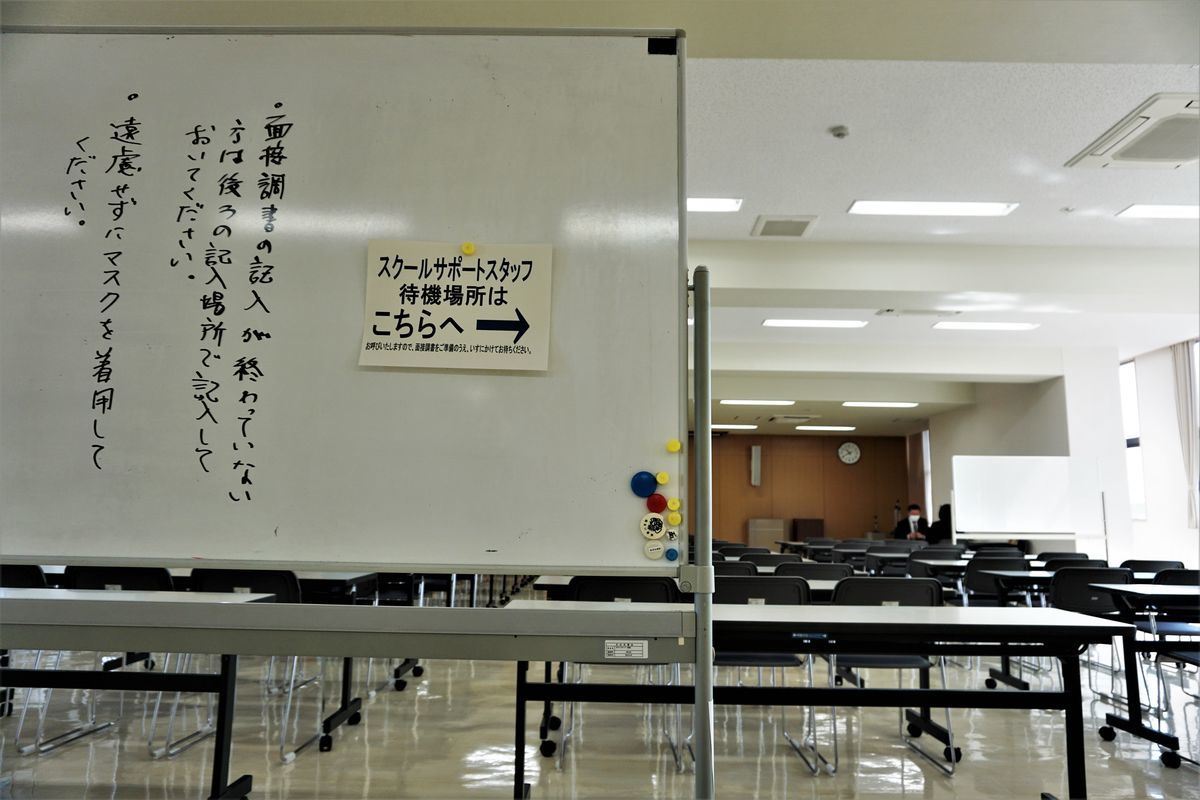 ・面接調書の記入が終わっていない
方は後ろの記入場所で記入して
おいてください。
・遠慮せずにマスクを着用して
ください。
スクールサポートスタッフ
待機場所は
こちらへ→
お呼びいたしますので、面接調書をご準備のうえ、いすにかけてお待ちください。